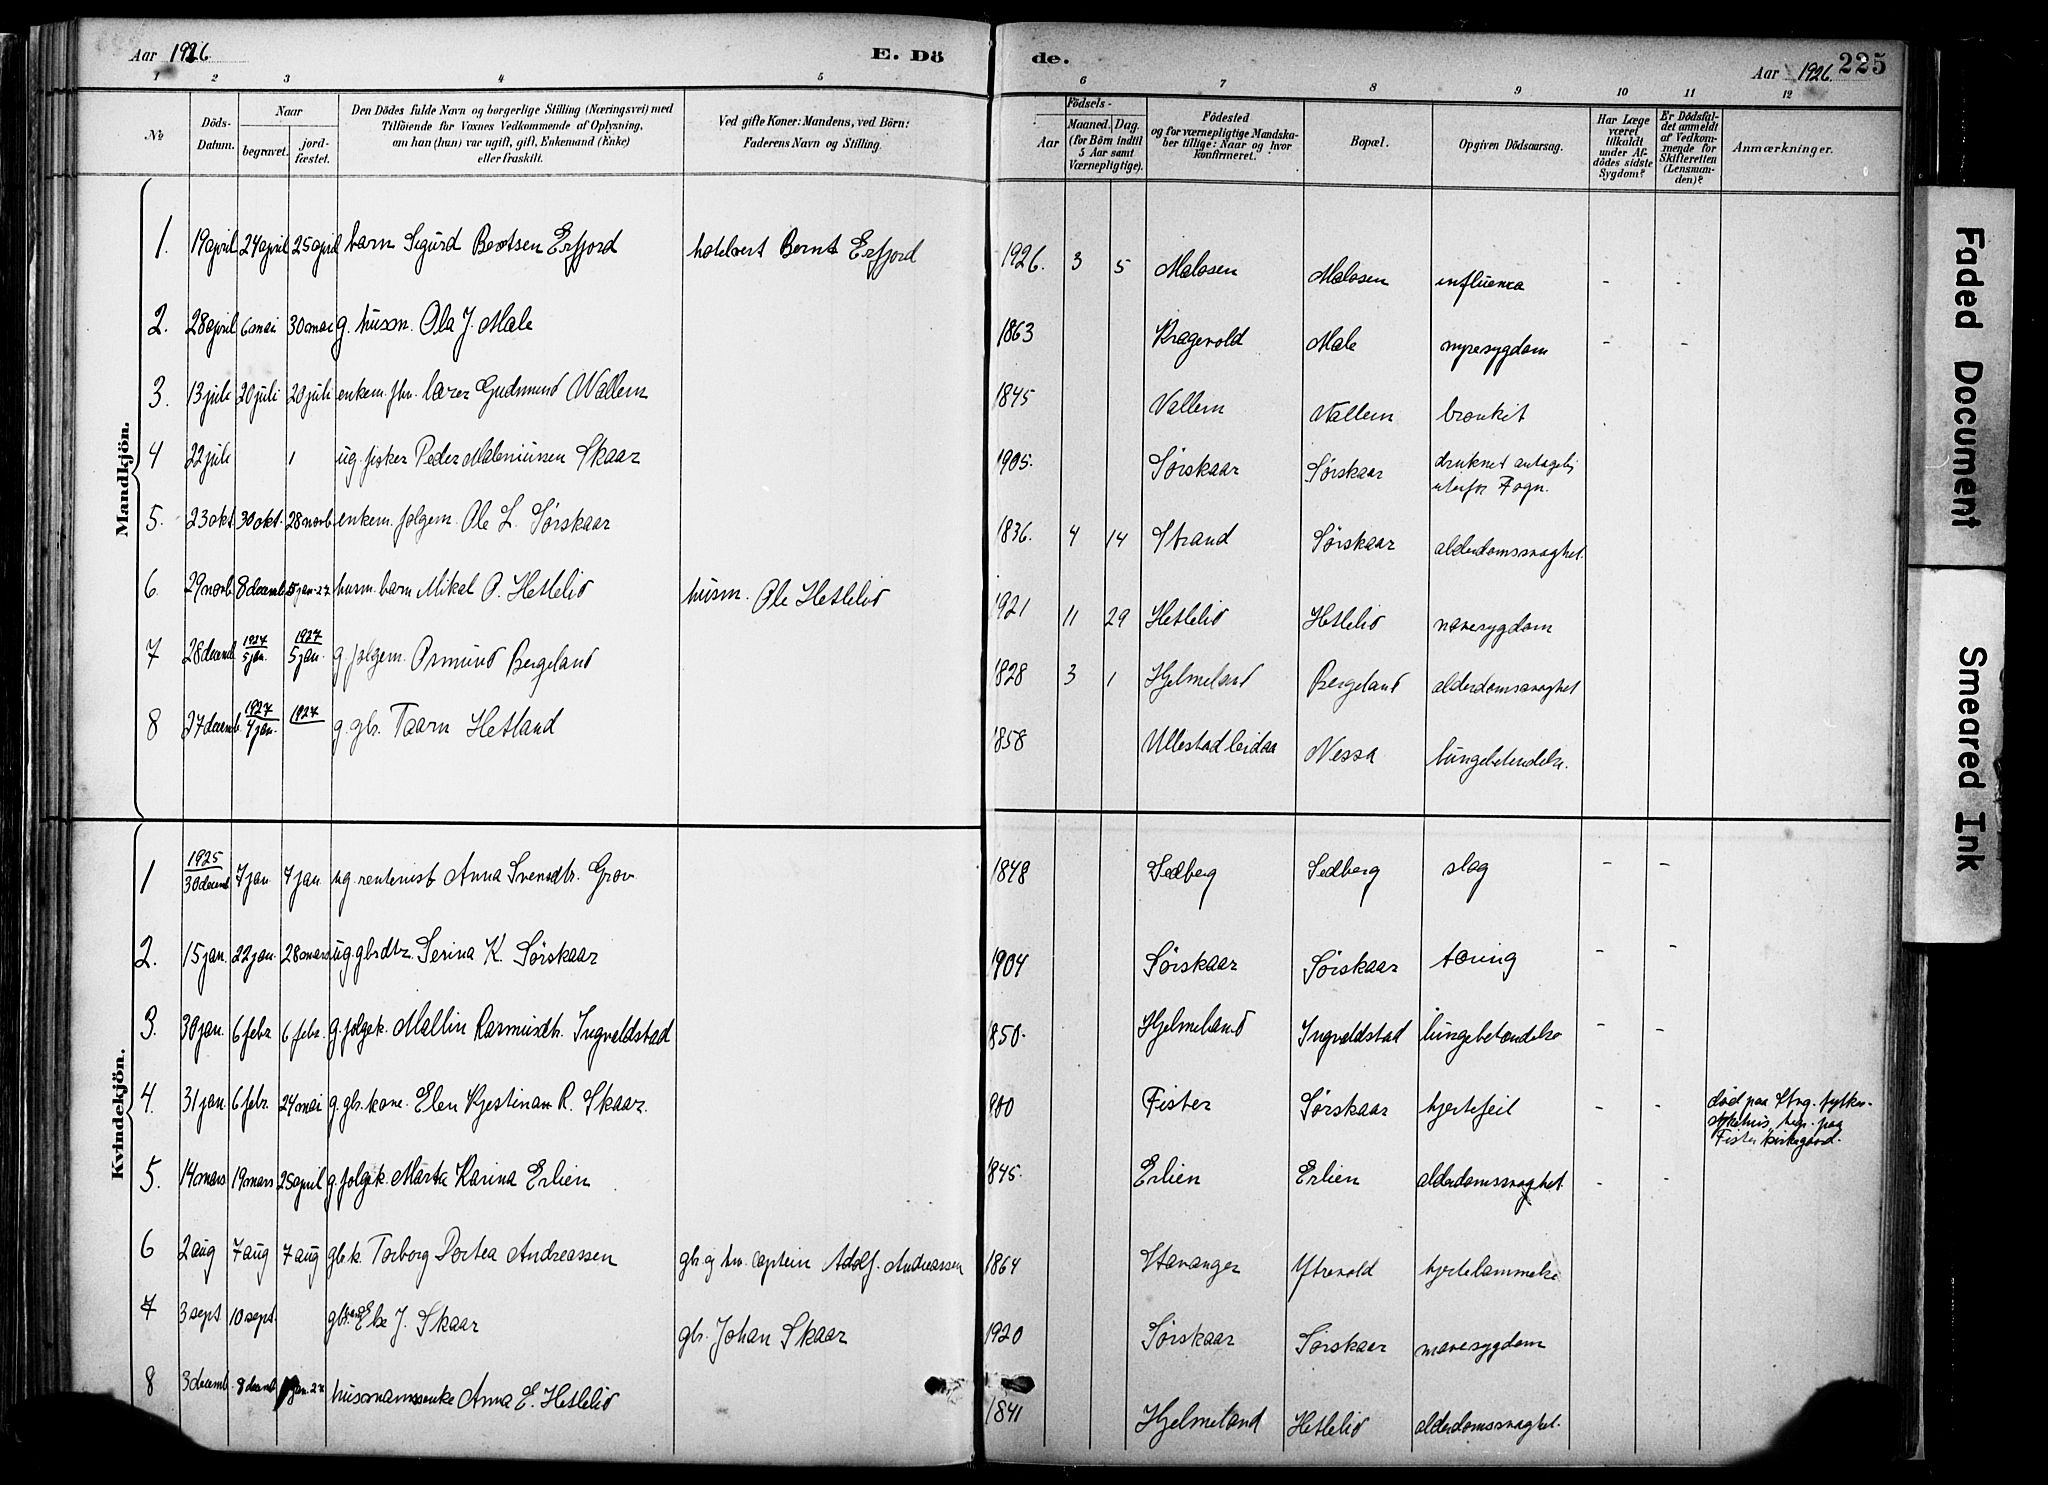 Aar 1926. E. Dö
de. Aar 1926. 225
1 2 3 4 5 6 7 8 9 10 11 12
№
Döds-Datum.
Naar
begravet.
jord-fæstet.
Den Dödes fulde Navn og borgerlige Stilling (Næringsvei) med
Tilföiende for Voxnes Vedkommende af Oplysning,
om han (hun) var ugift, gift, Enkemand (Enke)
eller fraskilt.
Ved gifte Koner: Mandens, ved Börn:
Faderens Navn og Stilling.
Födsels-
Aar
Maaned. Dag.
(for Börn indtil
5 Aar samt
Værnepligtige).
Födested
og for værnepligtige Mandska-
ber tillige: Naar og hvor
konfirmeret.
Bopæl.
Opgiven Dödsaarsag.
Har Læge
været
tilkaldt
under Af-
dödes sidste
Sygdom?
Er Dödsfal-
det anmeldt
af Vedkom-
mende for
Skifteretten
(Lensman-
den)?
Anmærkninger.
Mandkjön.
1. 19 april 24 april 25 april barn Sigurd Berntsen Erfjord hotelvert Bernt Erfjord 1926. 3 5 Malosen Malosen influenca - -
2. 28 april 6 mai 30 mai g. husm. Ola J. Male 1863 Kragevold Male nyresygdom - -
3. 13 juli 20 juli 20 juli enkem. fhv. lærer Gudmund Wallem 1845 Vallem Vallem bronkit
4 22 juli ug. fisker Peder Maleniussen Skaar 1905. Sørskaar Sørskaar druknet antagelig
utenfor Fogn.
5. 23 okt. 30 okt. 28 novb. enkem. folgem. Ole L. Sørskaar 1836. 4 14 Strand Sørskaar alderdomssvaghet.
6. 29 novb. 8 decemb. 5 jan. 27 husm. barn Mikal O. Hetlelid husm. Ole Hetlelid 1921 11 29 Hetlelid Hetlelid mavesygdom
7 28 decemb. 1927 5 jan. 1927 5 jan. g. folgem. Osmund Bergeland 1828 3 1 Hjelmeland Bergeland alderdomssvaghet
8 27 decemb. 1927 4 jan. 1927 g. gbr. Taarn Hetland 1858 Ullestadleidaa Nessa lungebetendelse.
Kvindekjön.
1 1925 30 decemb. 7 jan. 7 jan. ug. rentenist Anna Svensdtr. Grov 1848 Sedberg Sedberg slag - -
2. 15 jan. 22 jan. 28 mars ug. gbrdtr. Serina K. Sørskaar 1904 Sørskaar Sørskaar tæring - -
3. 30 jan. 6 febr. 6 febr. g. folgek. Mallin Rasmusdtr. Ingvaldstad 1850. Hjelmeland Ingvaldstad lungebetændelse - -
4. 31 jan. 6 febr. 24 mai g. gbr. kone. Elen Kjestinan R. Skaar. 1900 Fister Sørskaar hjertefeil - - død paa Stvg. fylkes-
sykehus, begr. paa
Fister kirkegaard.
5. 14 mars 19 mars 25 april g. folgek. Marta Karina Erlien 1845. Erlien Erlien alderdomssvaghet. - -
6 2 aug 7 aug 7 aug gbr. k. Torborg Dortea Andreassen gbr. g fhv. captein Adolf. Andreassen 1864 Stavanger Ytrevold hjertelammelse
7 3 sept 10 sept. gbr. barn Else J. Skaar gbr. Johan Skaar 1920 Sørskaar Sørskaar mavesygdom
8 3 decemb. 8 decemb. jan. 27 husmannsenke Anna E. Hetlelid 1841 Hjelmeland Hetlelid alderdomssvaghet.
Faded Document
Smeared Ink